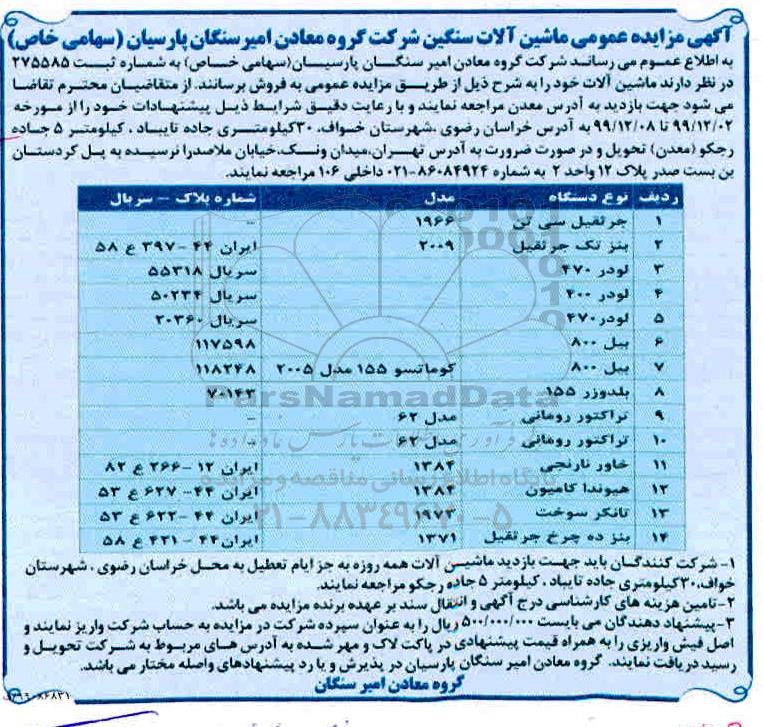 آگهی مزایده عمومی ماشین آلات سنگین شرکت گروه معادن امیر سنگان پارسیان (سهامی خاص)
به اطلاع عموم می رساند شرکت گروه معادن امیر سنگان پارسیان(سهامی خاص) به شماره ثبت ۲۷۵۵۸۵
در نظر دارند ماشین آلات خود را به شرح ذیل از طریق مزایده عمومی به فروش برسانند. از متقاضیان محترم تقاضا
می شود جهت بازدید به آدرس معدن مراجعه نمایند و با رعایت دقیق شرایط ذیل پیشنهادات خود را از مورخه
۹۹/۱۲/۰۲ تا ۹۹/۱۲/۰۸ به آدرس خراسان رضوی ،شهرستان خواف، ۳۰کیلومتری جاده تایباد ، کیلومتر ۵ جاده
رجکو (معدن) تحویل و در صورت ضرورت به آدرس تهران،میدان ونک،خیابان ملاصدرا نرسیده به پل کردستان
بن بست صدر پلاک ۱۲ واحد ۲ به شماره ۸۶۰۸۴۹۲۴-۰۲۱ داخلی ۱۰۶ مراجعه نمایند.
ردیف نوع دستگاه مدل شماره پلاک – سریال
۱ جرثقیل سی تن ۱۹۶۶ --
۲ بنز تک جرثقیل ۲۰۰۹ ایران ۴۴ -۳۹۷ ع ۵۸
۳ لودر ۴۷۰ سریال ۵۵۳۱۸
۴ لودر ۴۰۰ سریال ۵۰۲۳۴
۵ لودر ۴۷۰ سریال ۲۰۳۶۰
۶ بیل ۸۰۰ ۱۱۷۵۹۸
۷ بیل ۸۰۰ کوماتسو ۱۵۵ مدل ۲۰۰۵ ۱۱۸۲۴۸
۸ بلدوزر ۱۵۵ ۷۰۱۴۳
۹ تراکتور رومانی مدل ۶۲ –
۱۰ تراکتور رومانی مدل ۶۲
۱۱ خاور نارنجی ۱۳۸۲ ایران ۱۲ -۲۶۶ ع ۸۲
۱۲ هیوندا کامیون ۱۳۸۴ ایران ۴۴- ۶۲۷ ع ۵۳
۱۳ تانکر سوخت ۱۹۷۳ ایران ۴۴ -۶۲۲ ع ۵۳
۱۴ بنز ده چرخ جرثقیل ۱۳۷۱ ایران۴۴ - ۴۲۱ ع ۵۸
ParsNamadData
پایگاه اطلاع رسانی مناقصه و مزایده
۰۲۱-۸۸۳۴۹۶۷۰-۵
۱- شرکت کنندگان باید جهت بازدید ماشین آلات همه روزه به جز ایام تعطیل به محل خراسان رضوی ، شهرستان
خواف،۳۰کیلومتری جاده تایباد ، کیلومتر ۵ جاده رجکو مراجعه نمایند.
۲-تامین هزینه های کارشناسی درج آگهی و انتقال سند بر عهده برنده مزایده می باشد.
۳-پیشنهاد دهندگان می بایست ۵۰۰/۰۰۰/۰۰۰ ریال را به عنوان سپرده شرکت در مزایده به حساب شرکت واریز نمایند و
اصل فیش واریزی را به همراه قیمت پیشنهادی در پاکت لاک و مهر شده به آدرس های مربوط به شرکت تحویل و
رسید دریافت نمایند. گروه معادن امیر سنگان پارسیان در پذیرش و یا رد پیشنهادهای واصله مختار می باشد.
گروه معادن امیر سنگان